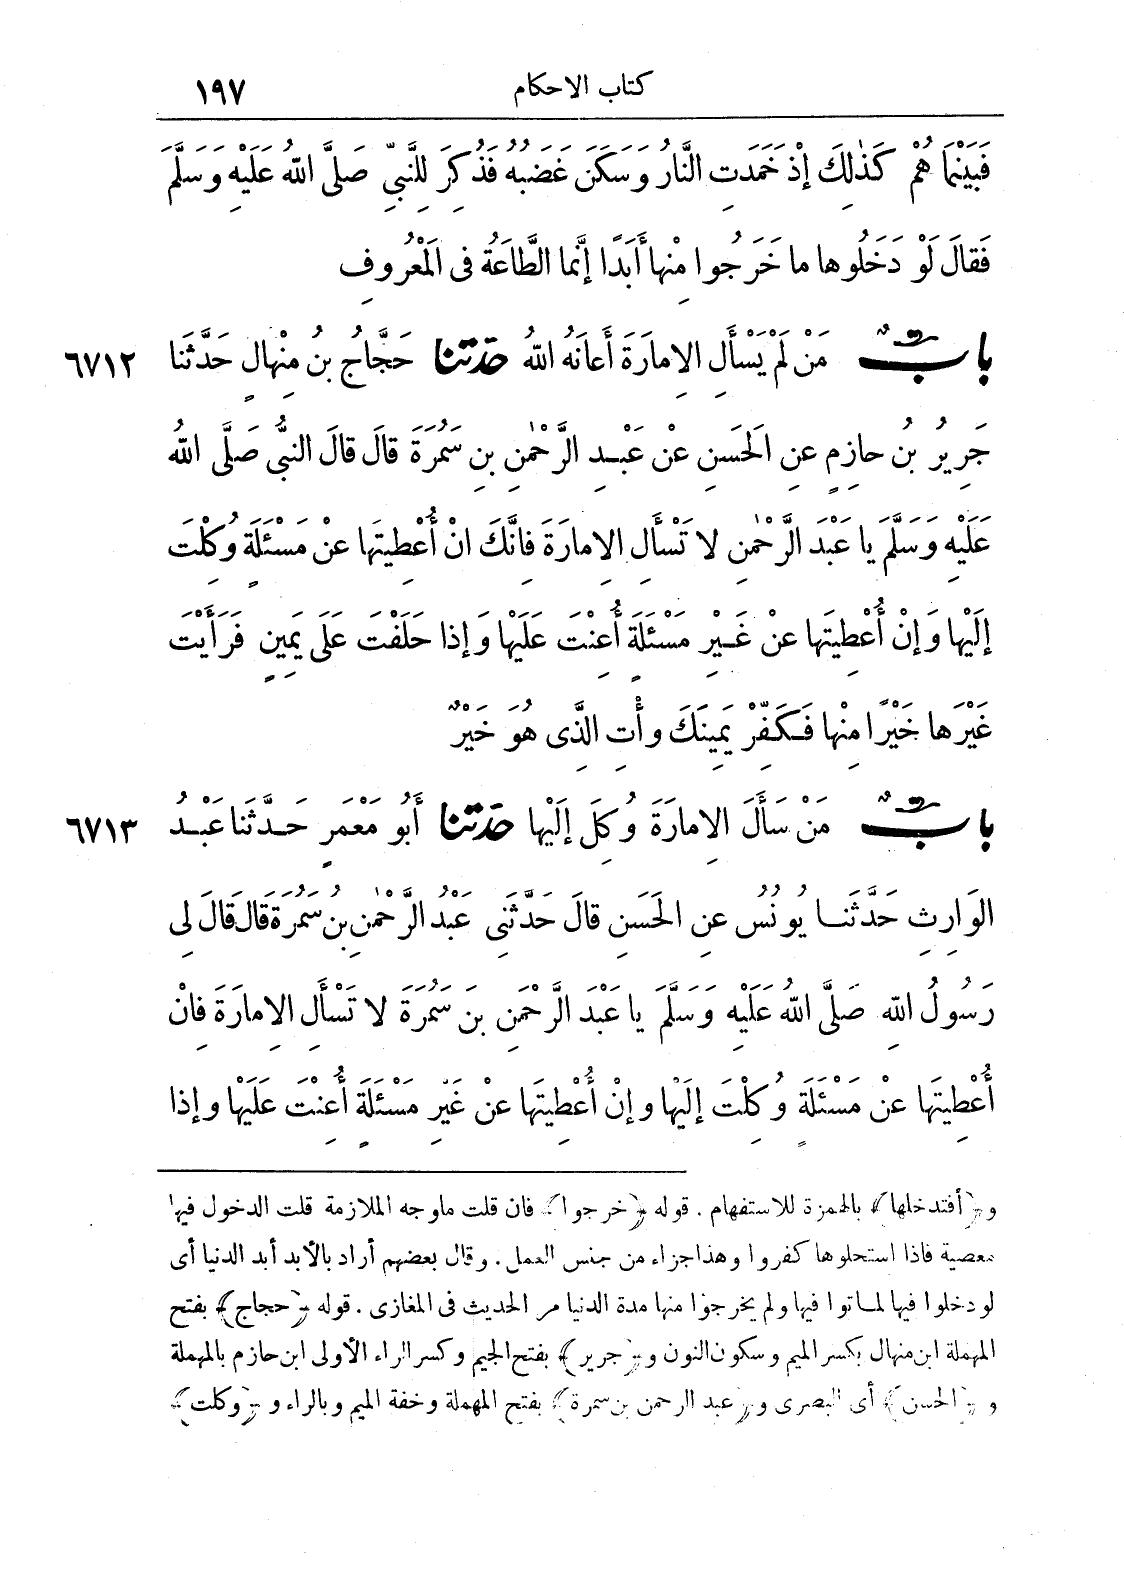 كتاب الاحكام ١٩٧
فَبَيْنَمَا هُمْ كَذٰلِكَ إِذْ خَمَدَتِ النَّارُ وَسَكَنَ غَضَبُهُ فَذُكِرَ لِلنَّبِيِّ صَلَّى اللهُ عَلَيْهِ وَسَلَّمَ
فَقَالَ لَوْ دَخَلُوها ما خَرَجُوا مِنْها أَبَدًا إِنَّما الطَّاعَةُ فِى الْمَعْرُوفِ
بابٌ مَنْ لَمْ يَسْأَلِ الإِمارَةَ أَعانَهُ اللهُ حَدَّثَنا حَجَّاجُ بنُ مِنْهالٍ حَدَّثَنا ٦٧١٢
جَرِيرُ بنُ حازِمٍ عنِ الحَسَنِ عنْ عَبْدِ الرَّحْمٰنِ بنِ سَمُرَةَ قالَ قالَ النبيُّ صَلَّى اللهُ
عَلَيْهِ وَسَلَّمَ يا عَبْدَ الرَّحْمٰنِ لا تَسْأَلِ الإِمارَةَ فإِنَّكَ انْ أُعْطِيتَها عنْ مَسْئَلَةٍ وُكِلْتَ
إِلَيْها وَإِنْ أُعْطِيتَها عنْ غَيْرِ مَسْئَلَةٍ أُعِنْتَ عَلَيْها وَإِذا حَلَفْتَ عَلَى يَمِينٍ فَرَأَيْتَ
غَيْرَها خَيْرًا مِنْها فَكَفِّرْ يَمِينَكَ وأْتِ الَّذِى هُوَ خَيْرٌ
بابٌ مَنْ سَأَلَ الإِمارَةَ وُكِلَ إِلَيْها حَدَّثَنا أَبُو مَعْمَرٍ حَدَّثَنا عَبْدُ ٦٧١٣
الوَارِثِ حَدَّثَنا يُونُسُ عنِ الحَسَنِ قالَ حَدَّثَنِى عَبْدُ الرَّحْمٰنِ بنُ سَمُرَةَ قالَ قالَ لِى
رَسُولُ اللهِ صَلَّى اللهُ عَلَيْهِ وَسَلَّمَ يا عَبْدَ الرَّحْمَنِ بنَ سَمُرَةَ لا تَسْأَلِ الإِمارَةَ فإِنْ
أُعْطِيتَها عنْ مَسْئَلَةٍ وُكِلْتَ إِلَيْها وإِنْ أُعْطِيتَها عنْ غَيْرِ مَسْئَلَةٍ أُعِنْتَ عَلَيْها وإِذا
و﴿أفتدخلها﴾ بالهمزة للاستفهام . قوله ﴿خرجوا﴾ فان قلت ماوجه الملازمة قلت الدخول فيها
معصية فاذا استحلوها كفروا وهذا جزاء من جنس العمل . وقال بعضهم أراد بالأبد أبد الدنيا أى
لو دخلوا فيها لماتوا فيها ولم يخرجوا منها مدة الدنيا مر الحديث فى المغازى . قوله ﴿حجاج﴾ بفتح
المهملة ابن منهال بكسر الميم وسكون النون و﴿جرير﴾ بفتح الجيم وكسر الراء الأولى ابن حازم بالمهملة
و﴿الحسن﴾ أى البصرى و﴿عبد الرحمن بن سمرة﴾ بفتح المهملة وخفة الميم وبالراء و﴿وكلت﴾